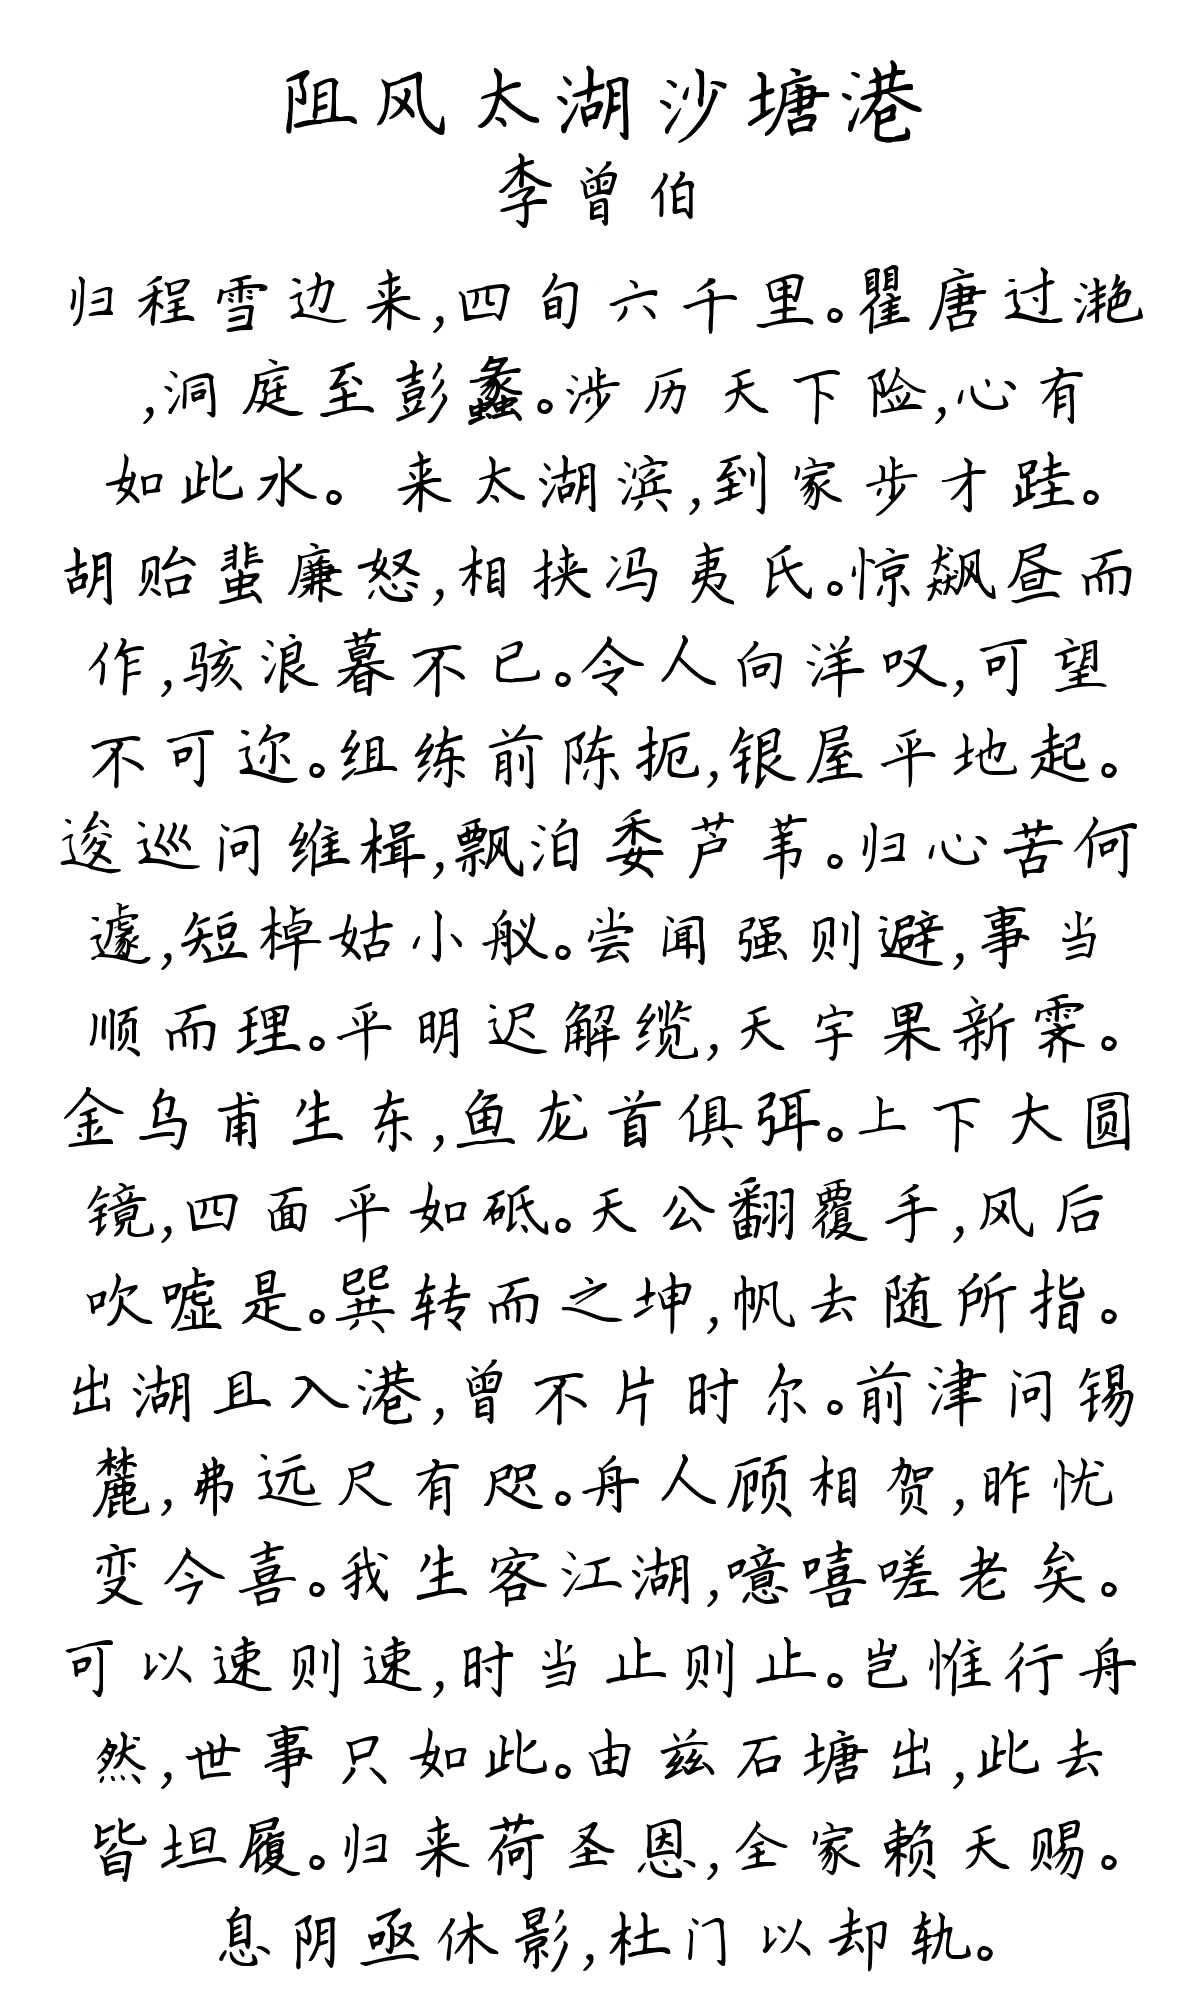 阻风太湖沙塘港
李曾伯
归程雪边来,四旬六千里。瞿唐过滟
,洞庭至彭蠡。涉历天下险,心有
如此水。来太湖滨,到家步才跬。
胡贻蜚廉怒,相挟冯夷氏。惊飙昼而
作,骇浪暮不已。令人向洋叹,可望
不可迩。组练前陈扼,银屋平地起。
逡巡问维楫,飘泊委芦苇。归心苦何
遽,短棹姑小舣。尝闻强则避,事当
顺而理。平明迟解缆,天宇果新霁。
金乌甫生东,鱼龙首俱弭。上下大圆
镜,四面平如砥。天公翻覆手,风后
吹嘘是。巽转而之坤,帆去随所指。
出湖且入港,曾不片时尔。前津问锡
麓,弗远尺有咫。舟人顾相贺,昨忧
变今喜。我生客江湖,噫嘻嗟老矣。
可以速则速,时当止则止。岂惟行舟
然,世事只如此。由兹石塘出,此去
皆坦履。归来荷圣恩,全家赖天赐。
息阴亟休影,杜门以却轨。